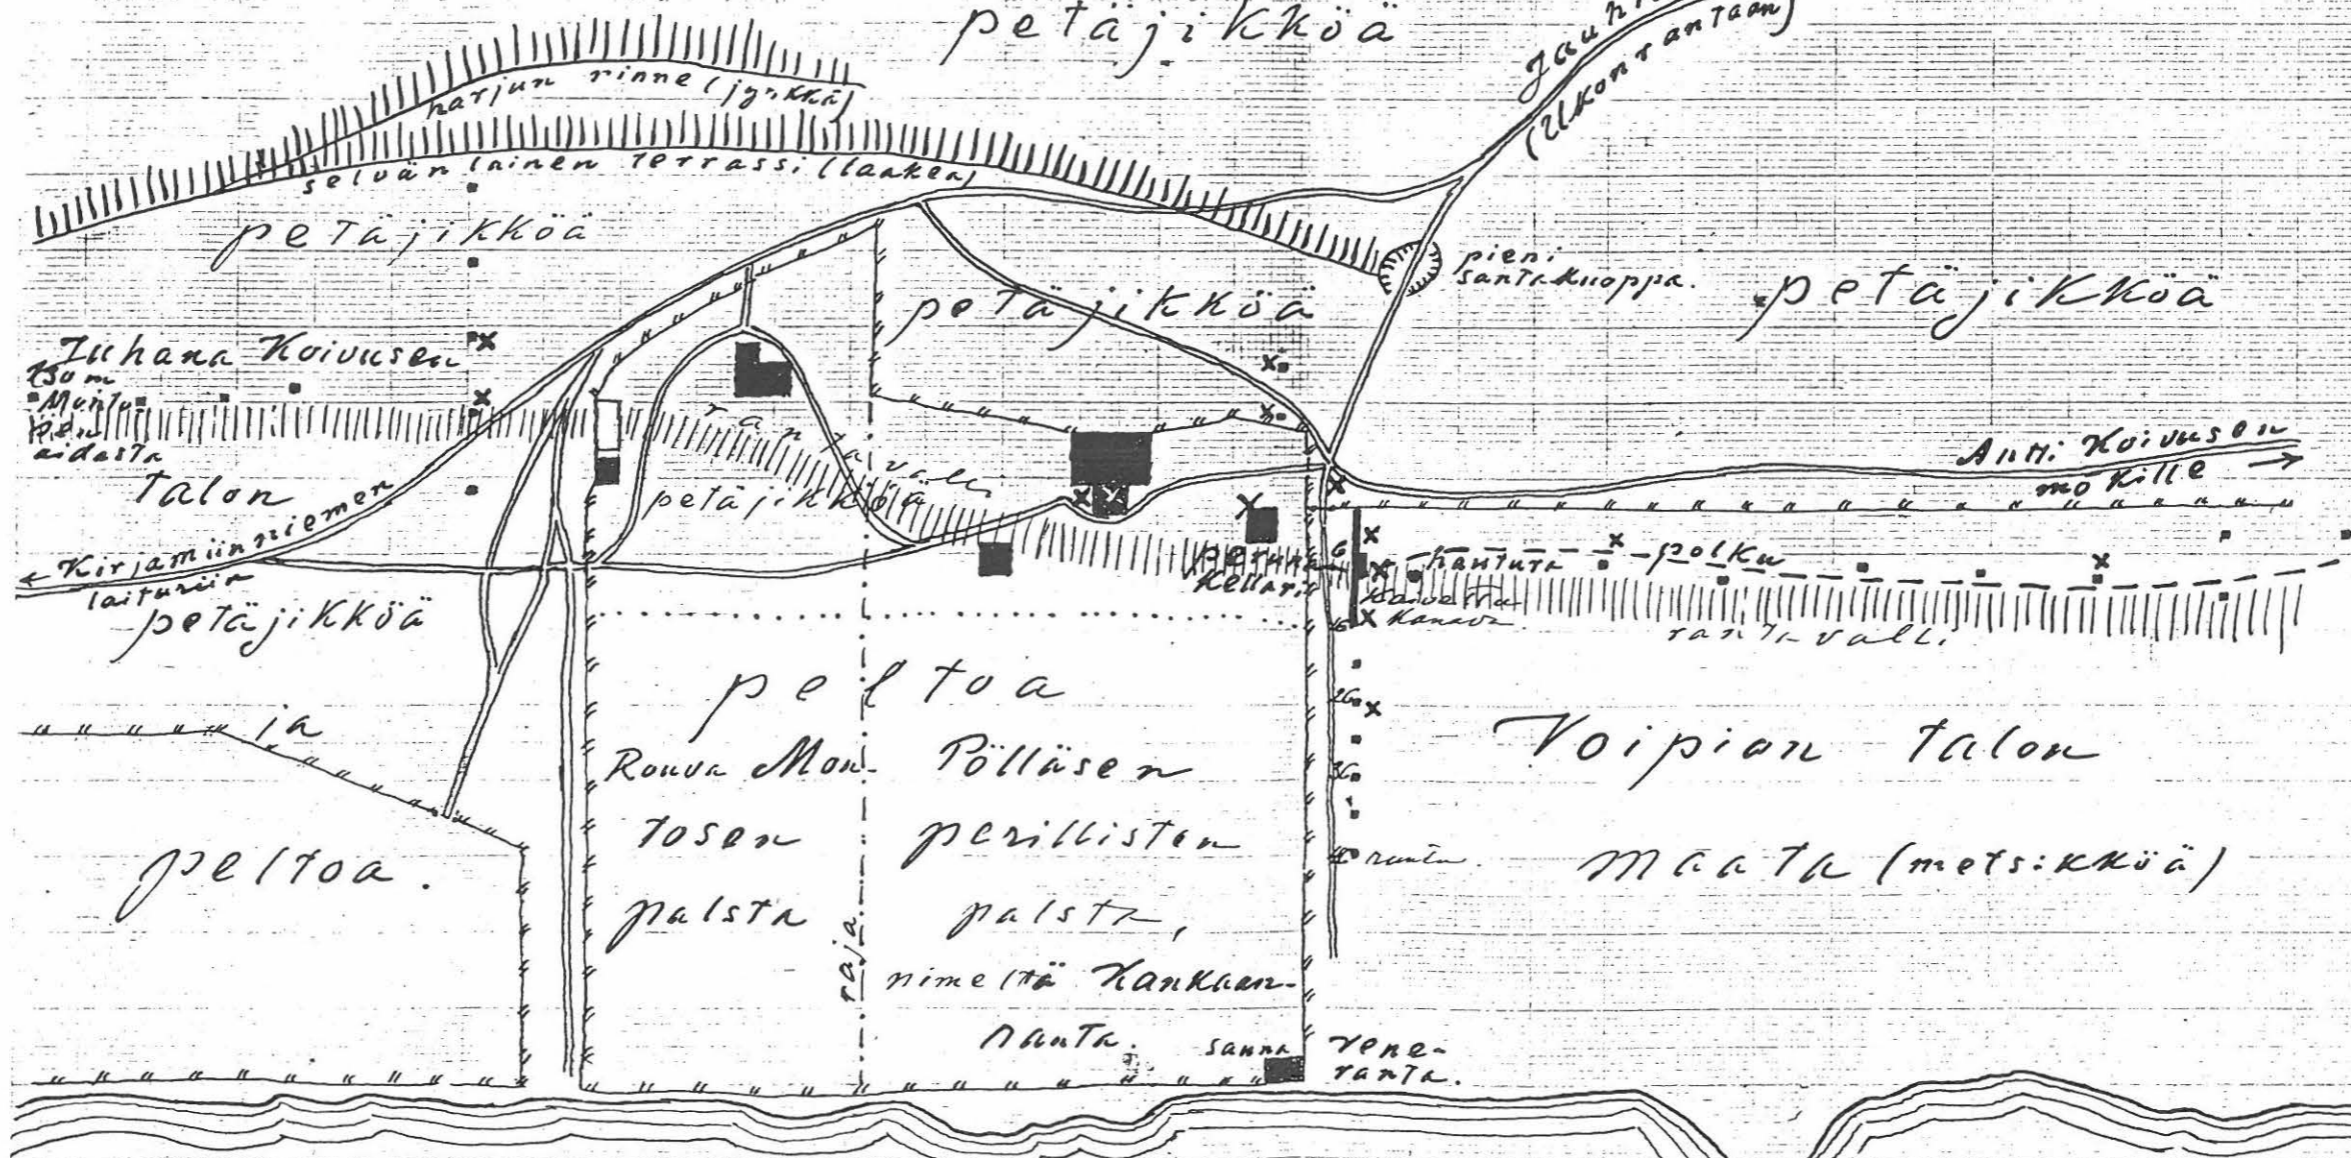 petäjikköä
(Ukonrantaan)
harjun rinne (jyrkkä)
selvän lainen terrassi (laakea)
petäjikköä
pieni
santakuoppa.
petäjikköä
petäjikköä
Juhana Koivusen
talon
rantavalli
petäjikköä
Antti Koivusen
mökille
← Kirjamiinniemen
laituriin
petäjikköä
peruna
kellari
6
hautura
polku
kaivettu
kanava
16
rantavalli
ja
peltoa
26
36
ranta.
Rouva Mon-
tosen
palsta
Pölläsen
perillisten
palsta,
nimeltä Kankaan-
ranta.
raja
Voipion talon
maata (metsikköä)
peltoa.
sauna
vene-
ranta.